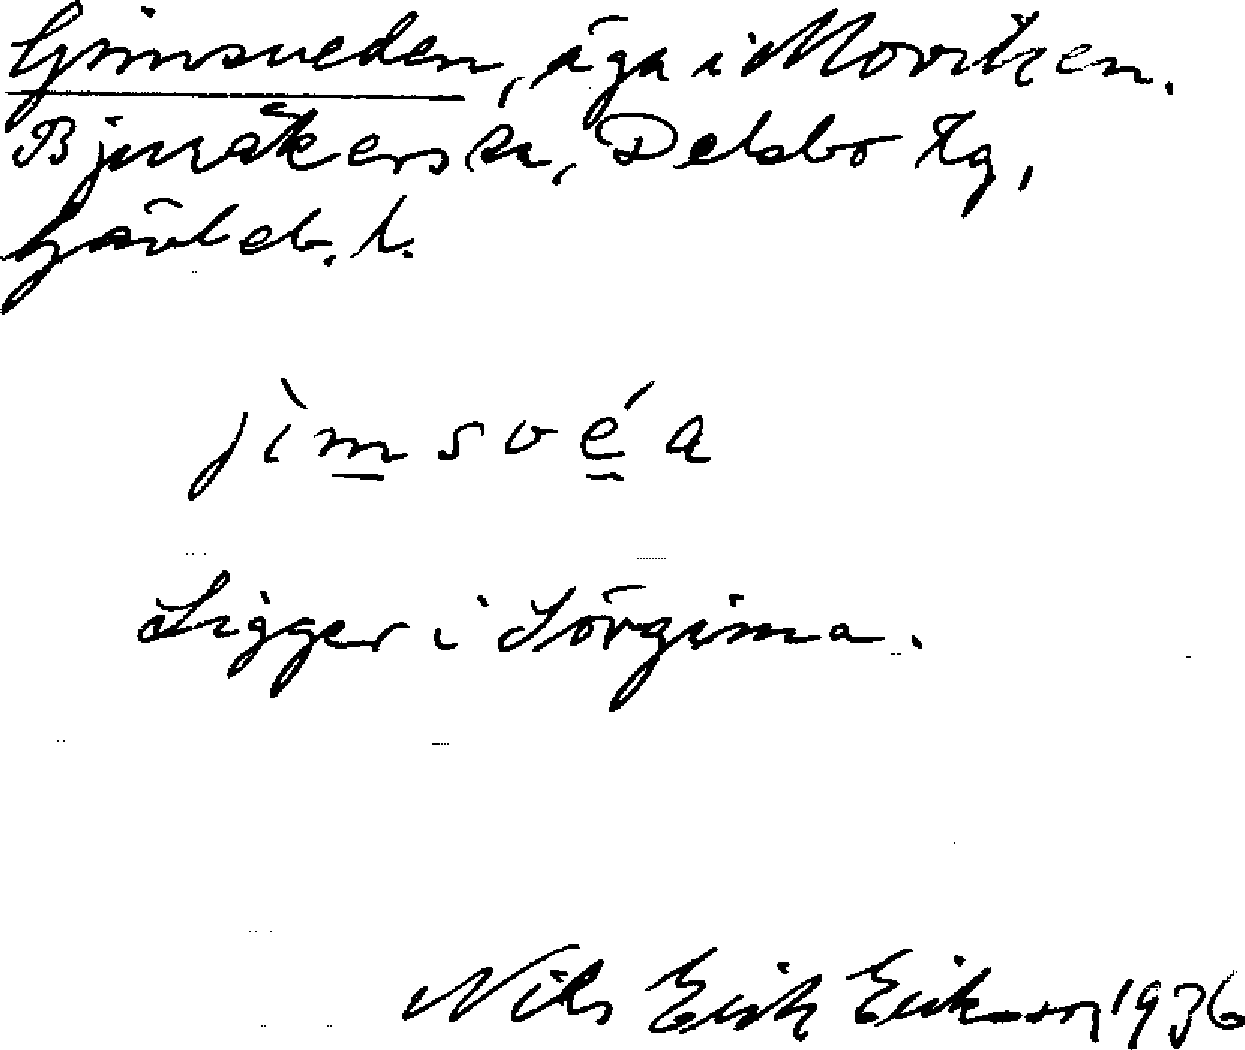 Gimsveden, äga i Moviken.
Bjuråkers sn, Delsbo tg,
Gävleb. l.
jìmsvéa
Ligger i Sörgimma.
Nils Erik Eriksson 1936